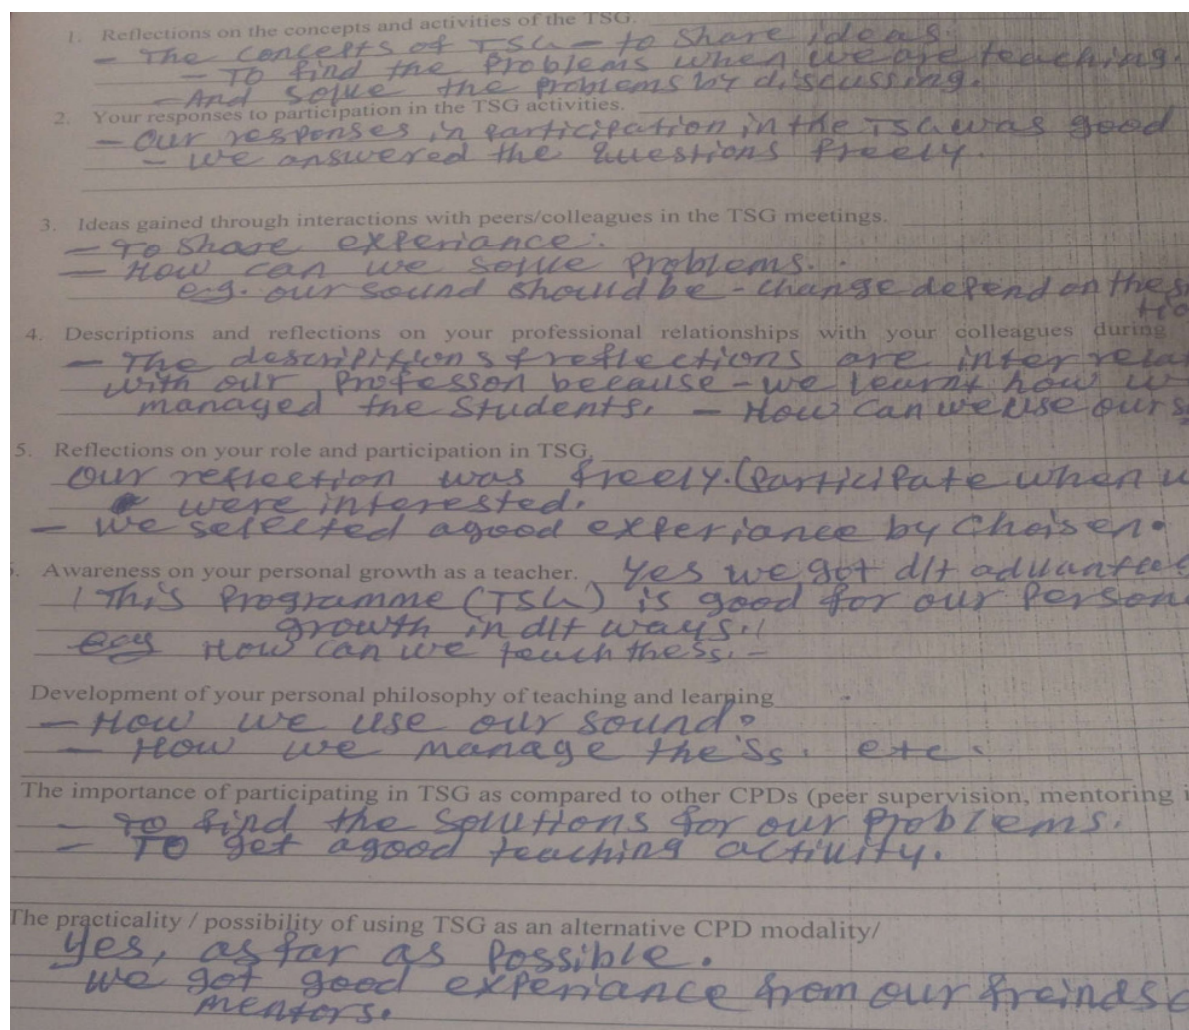 1. Reflections on the concepts and activities of the TSG.
- The concepts of TSG - to share ideas.
- To find the problems when we are teaching.
- And solve the problems by discussing.
2. Your responses to participation in the TSG activities.
- Our responses in participation in the TSG was good
- we answered the questions freely.
3. Ideas gained through interactions with peers/colleagues in the TSG meetings.
- To share experiance.
- How can we solve problems.
e.g. our sound should be - change depend on the
4. Descriptions and reflections on your professional relationships with your colleagues during
- The descripitions & reflections are inter rela
with our professon because - we learnt how w
managed the students. - How can we use our s
5. Reflections on your role and participation in TSG
Our reflection was freely. (participate when w
were interested.
- we selected agood experiance by choisen.
. Awareness on your personal growth as a teacher. Yes we got d/t advantae
This programme (TSG) is good for our person
growth in d/t ways.
How can we teach the Ss. -
Development of your personal philosophy of teaching and learning
- How we use our sound.
- How we manage the Ss. etc.
The importance of participating in TSG as compared to other CPDs (peer supervision, mentoring i
- To find the solutions for our problems.
- To get agood teaching activity.
The practicality / possibility of using TSG as an alternative CPD modality/
Yes, as far as possible.
we got good experiance from our freinds
mentors.